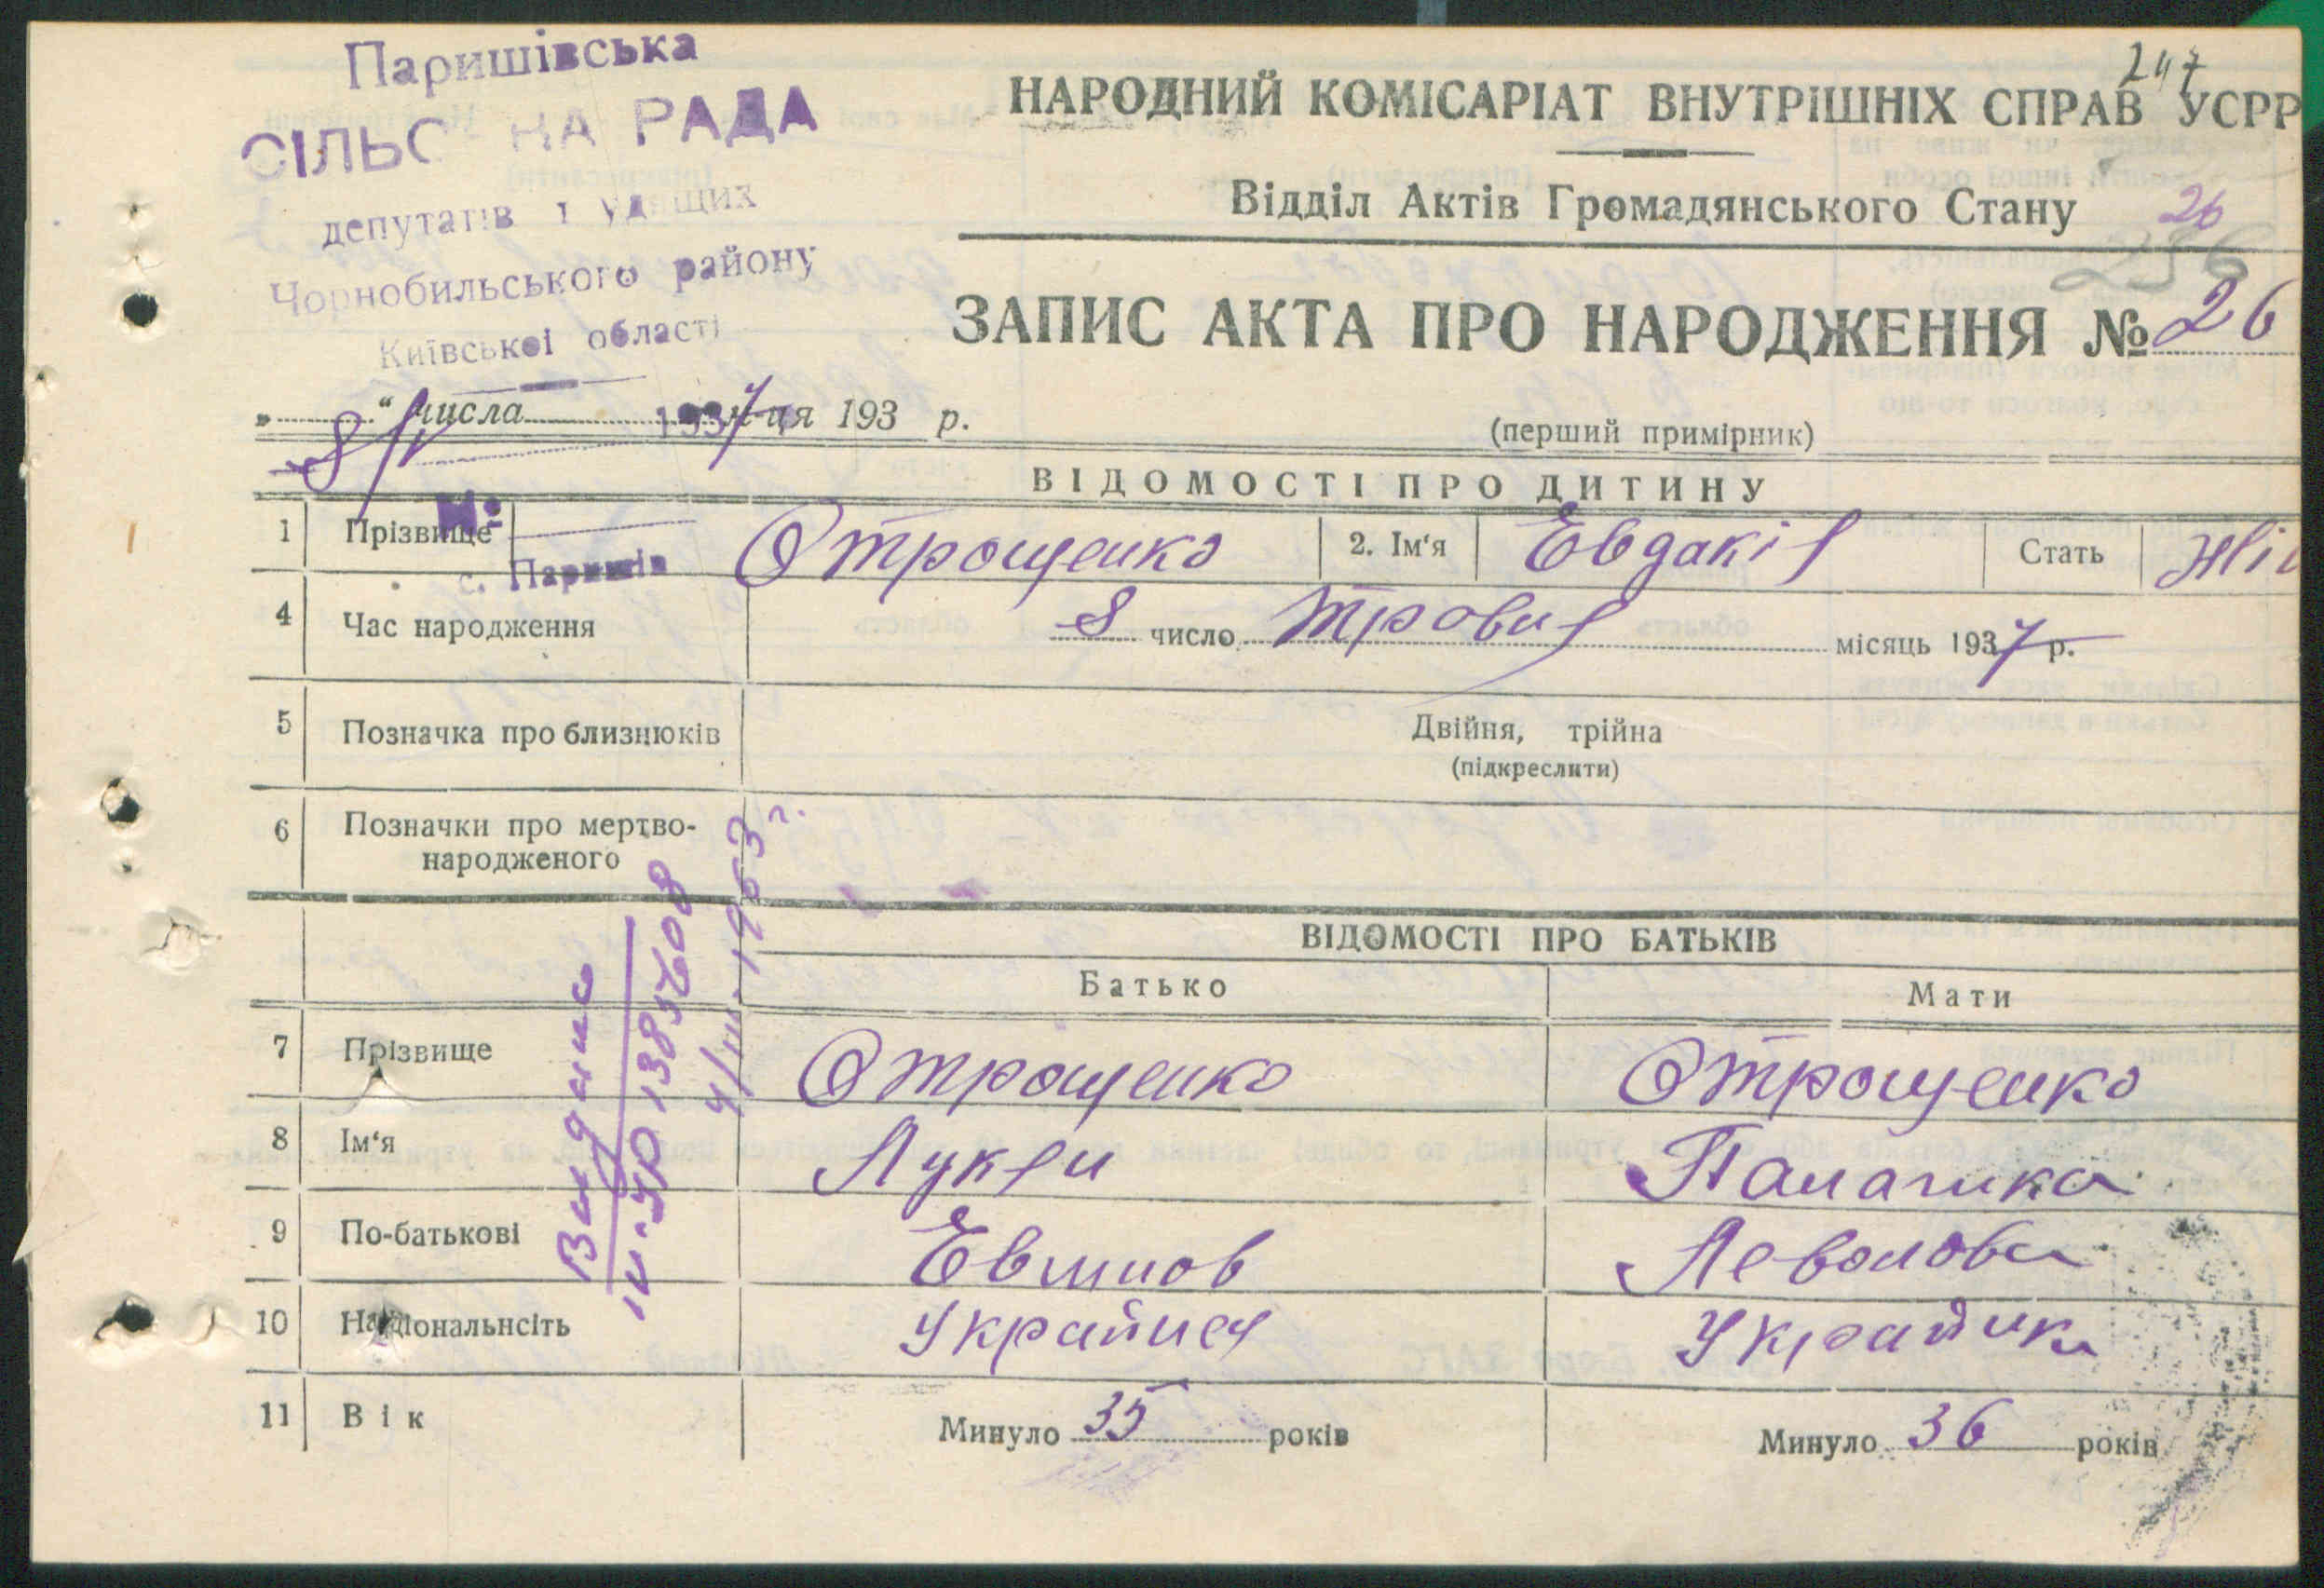 247
Паришівська
СІЛЬС НА РАДА
депутатів і уд щих
Чорнобильського району
Київської області
НАРОДНИЙ КОМІСАРІАТ ВНУТРІШНІХ СПРАВ УСРР
Відділ Актів Громадянського Стану 26
236
ЗАПИС АКТА ПРО НАРОДЖЕННЯ № 26
(перший примірник)
„ 8/V “ числа 1937 м-ця 193 р.
№
с. Паришів
ВІДОМОСТІ ПРО ДИТИНУ
1 Прізвище Отрощенко 2. Ім‘я Евдакія Стать Жін
4 Час народження 8 число Тровня місяць 1937 р.
5 Позначка про близнюків Двійня, трійна
(підкреслити)
6 Позначки про мертво-
народженого
ВІДОМОСТІ ПРО БАТЬКІВ
Батько Мати
7 Прізвище Отрощенко Отрощенко
8 Ім‘я Лукян
9 По-батькові
10 Національнсіть Украйнец Украйнка
11 Вік Минуло 35 років Минуло 36 років
Видано